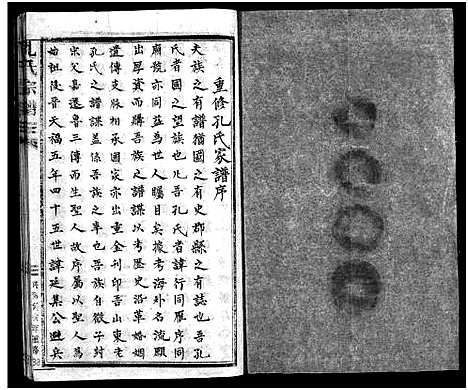 重修孔氏家譜序
夫族之有譜猶國之有史郡縣之有誌也吾孔
氏者國之望族也凡吾孔氏者諱行同雁序同
廟貌亦同益為世人矚目矣後考海外名流願
出厚資而購吾族之譜諜以考歷史沿革婚姻
遺傳支脈相承國家亦出重金刊印吾山東老
孔氏之譜諜蓋係吾族之年也吾族自微子封
宋父嘉遷魯三傳而生聖人故序屬以聖人為
始祖後晉天福五年四十五世諱延集公避兵
孔氏宗譜